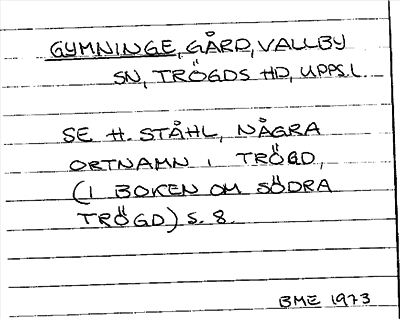 GYMNINGE, GÅRD, VALLBY
SN, TRÖGDS HD, UPPS.L.
SE H. STÅHL, NÅGRA
ORTNAMN I TRÖGD,
(I BOKEN OM SÖDRA
TRÖGD) S. 8.
BME 1973